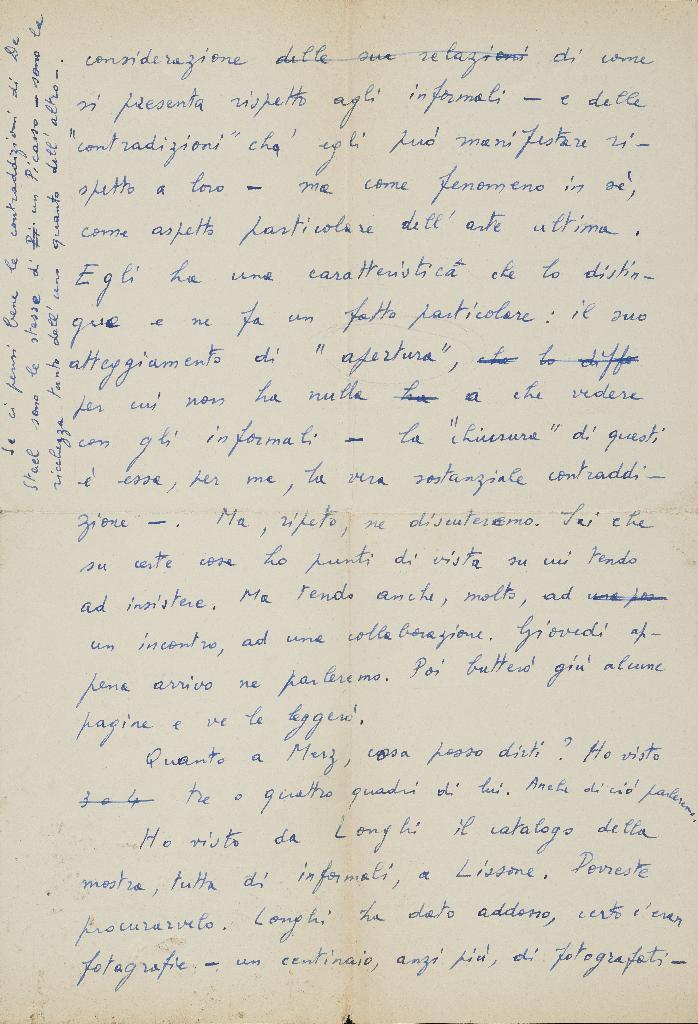 considerazione delle sue relazioni di come
si presenta rispetto agli informali — e delle
"contradizioni" ché egli può manifestare ri-
spetto a loro — ma come fenomeno in sé,
come aspetto particolare dell'arte ultima.
Egli ha una caratteristica che lo distin-
gue e ne fa un fatto particolare: il suo
atteggiamento di "apertura", che lo diffe
per cui non ha nulla ha a che vedere
con gli informali — la "chiusura" di questi
é essa, per me, la vera sostanziale contraddi-
zione —. Ma, ripeto, ne discuteremo. Sai che
su certe cose ho punti di vista su cui tendo
ad insistere. Ma tendo anche, molto, ad una pos
un incontro, ad una collaborazione. Giovedì ap-
pena arrivo ne parleremo. Poi butterò giù alcune
pagine e ve le leggerò.
Quanto a Merz, cosa posso dirti? Ho visto
3 o 4 tre o quattro quadri di lui. Anche di ciò parleremo.
Ho visto da Longhi il catalogo della
mostra, tutta di informali, a Lissone. Dovreste
procurarvelo. Longhi ha dato addosso, certo c'eran
fotografie — un centinaio, anzi più, di fotografati—
Se ci pensi bene le contraddizioni di De
Stael sono le stesse di Pi un Picasso — sono la
ricchezza tanto dell'uno quanto dell'altro —.